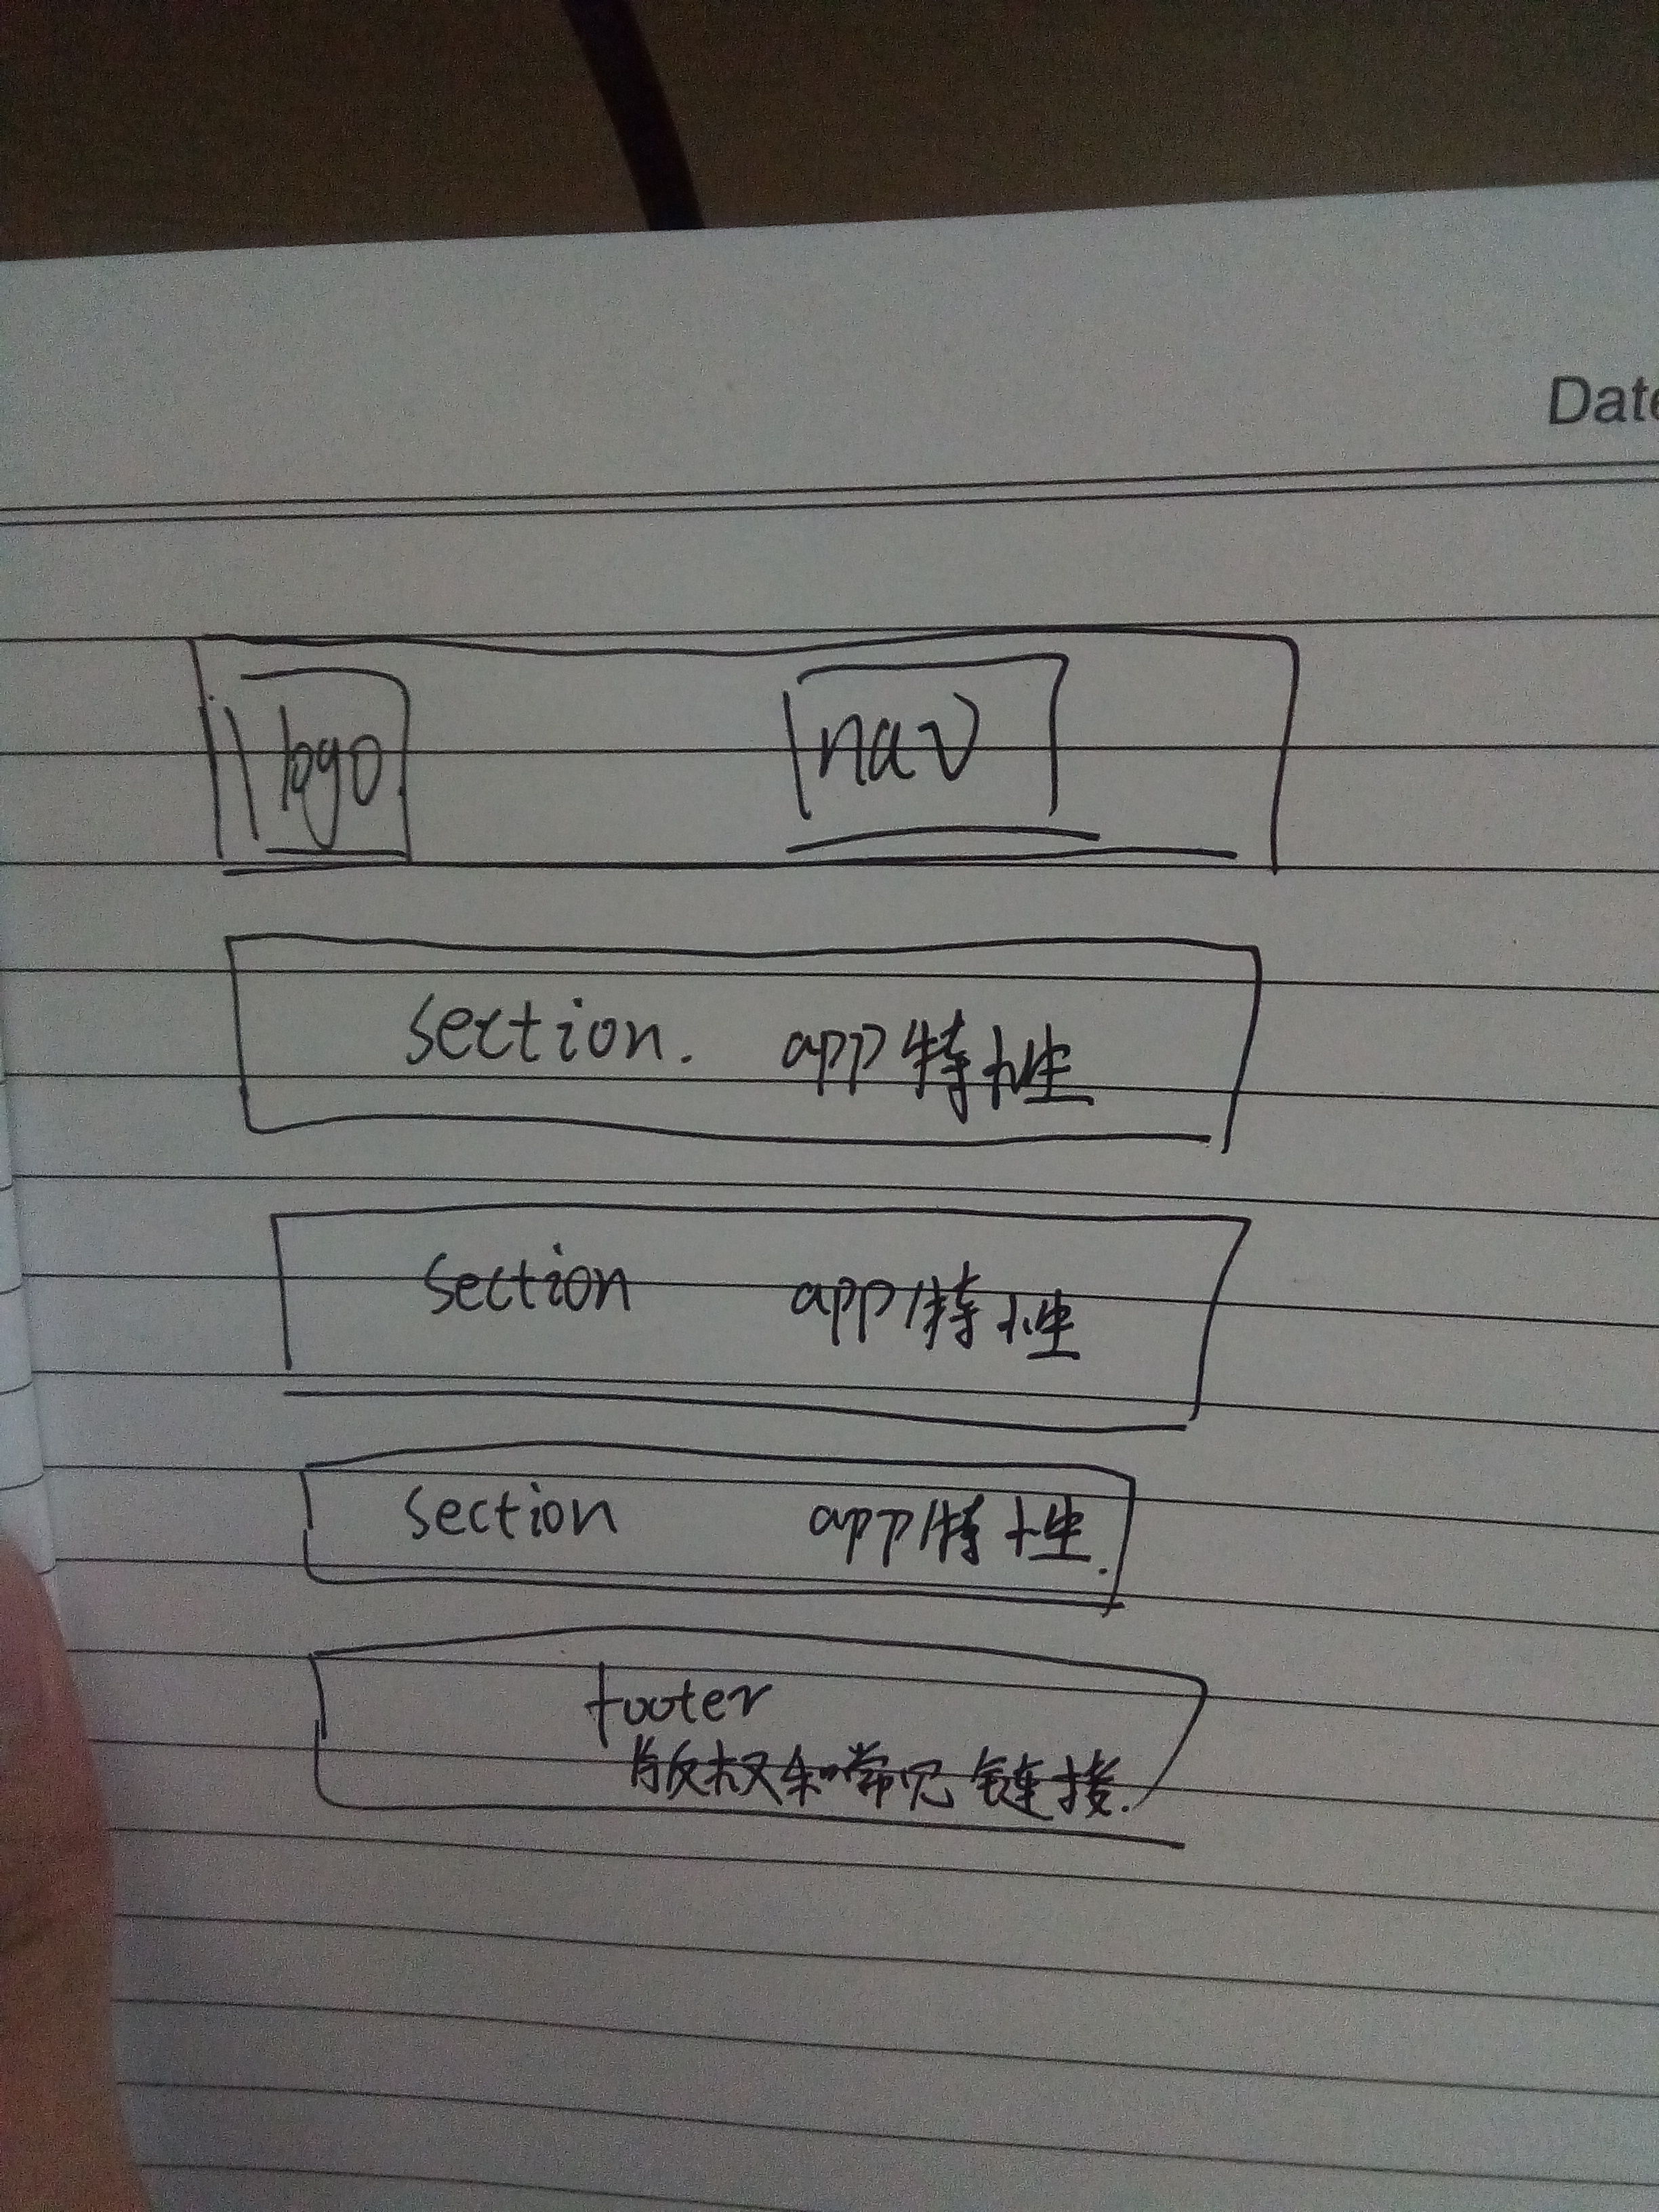 Date
logo
nav
section. app特性
section app特性
section app特性.
footer
版权和常见链接.